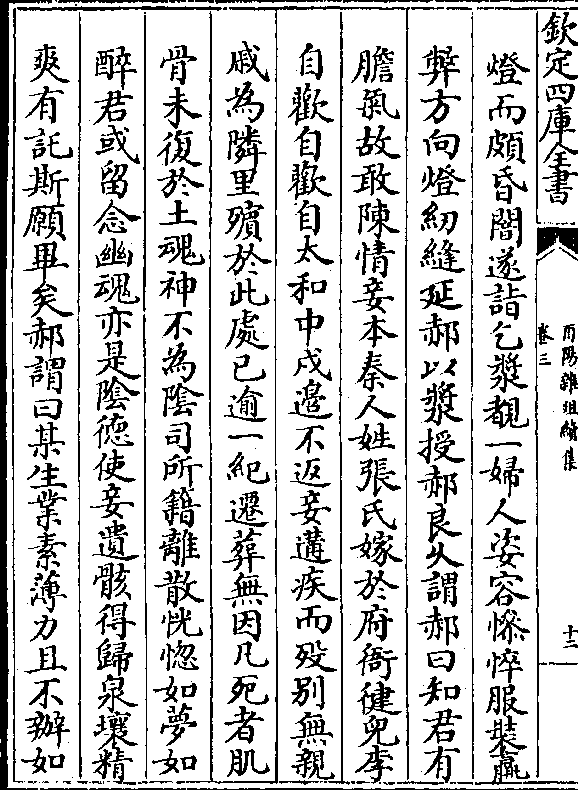 欽定四庫全書
酉陽雜俎續集
卷三
十二
燈而頗昏闇遂詣乞漿覩一婦人姿容慘悴服裝羸
弊方向燈紉縫延郝以漿授郝良久謂郝曰知君有
膽氣故敢陳情妾本秦人姓張氏嫁於府衙健兒李
自歡自歡自太和中戍邊不返妾遘疾而殁别無親
戚為隣里殯於此處已逾一紀遷葬無因凡死者肌
骨未復於土魂神不為陰司所籍離散恍惚如夢如
醉君或留念幽魂亦是陰德使妾遺骸得歸泉壤精
爽有託斯願畢矣郝謂曰某生業素薄力且不辦如